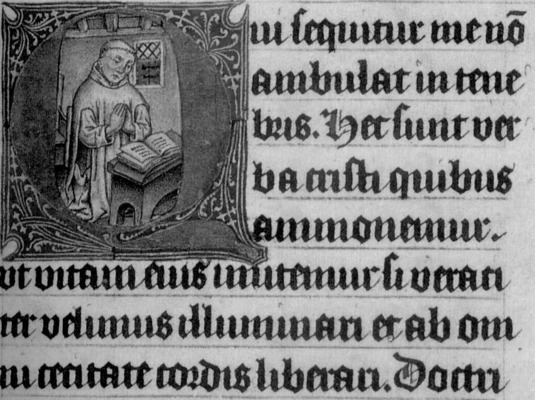 Qui sequitur me nō
ambulat in tene
bris. Hec sunt ver
ba cristi quibus
ammonemur.
ut vitam eius imitemur si veraci
ter velimus illuminari et ab om
ni cecitate cordis liberari. Doctri